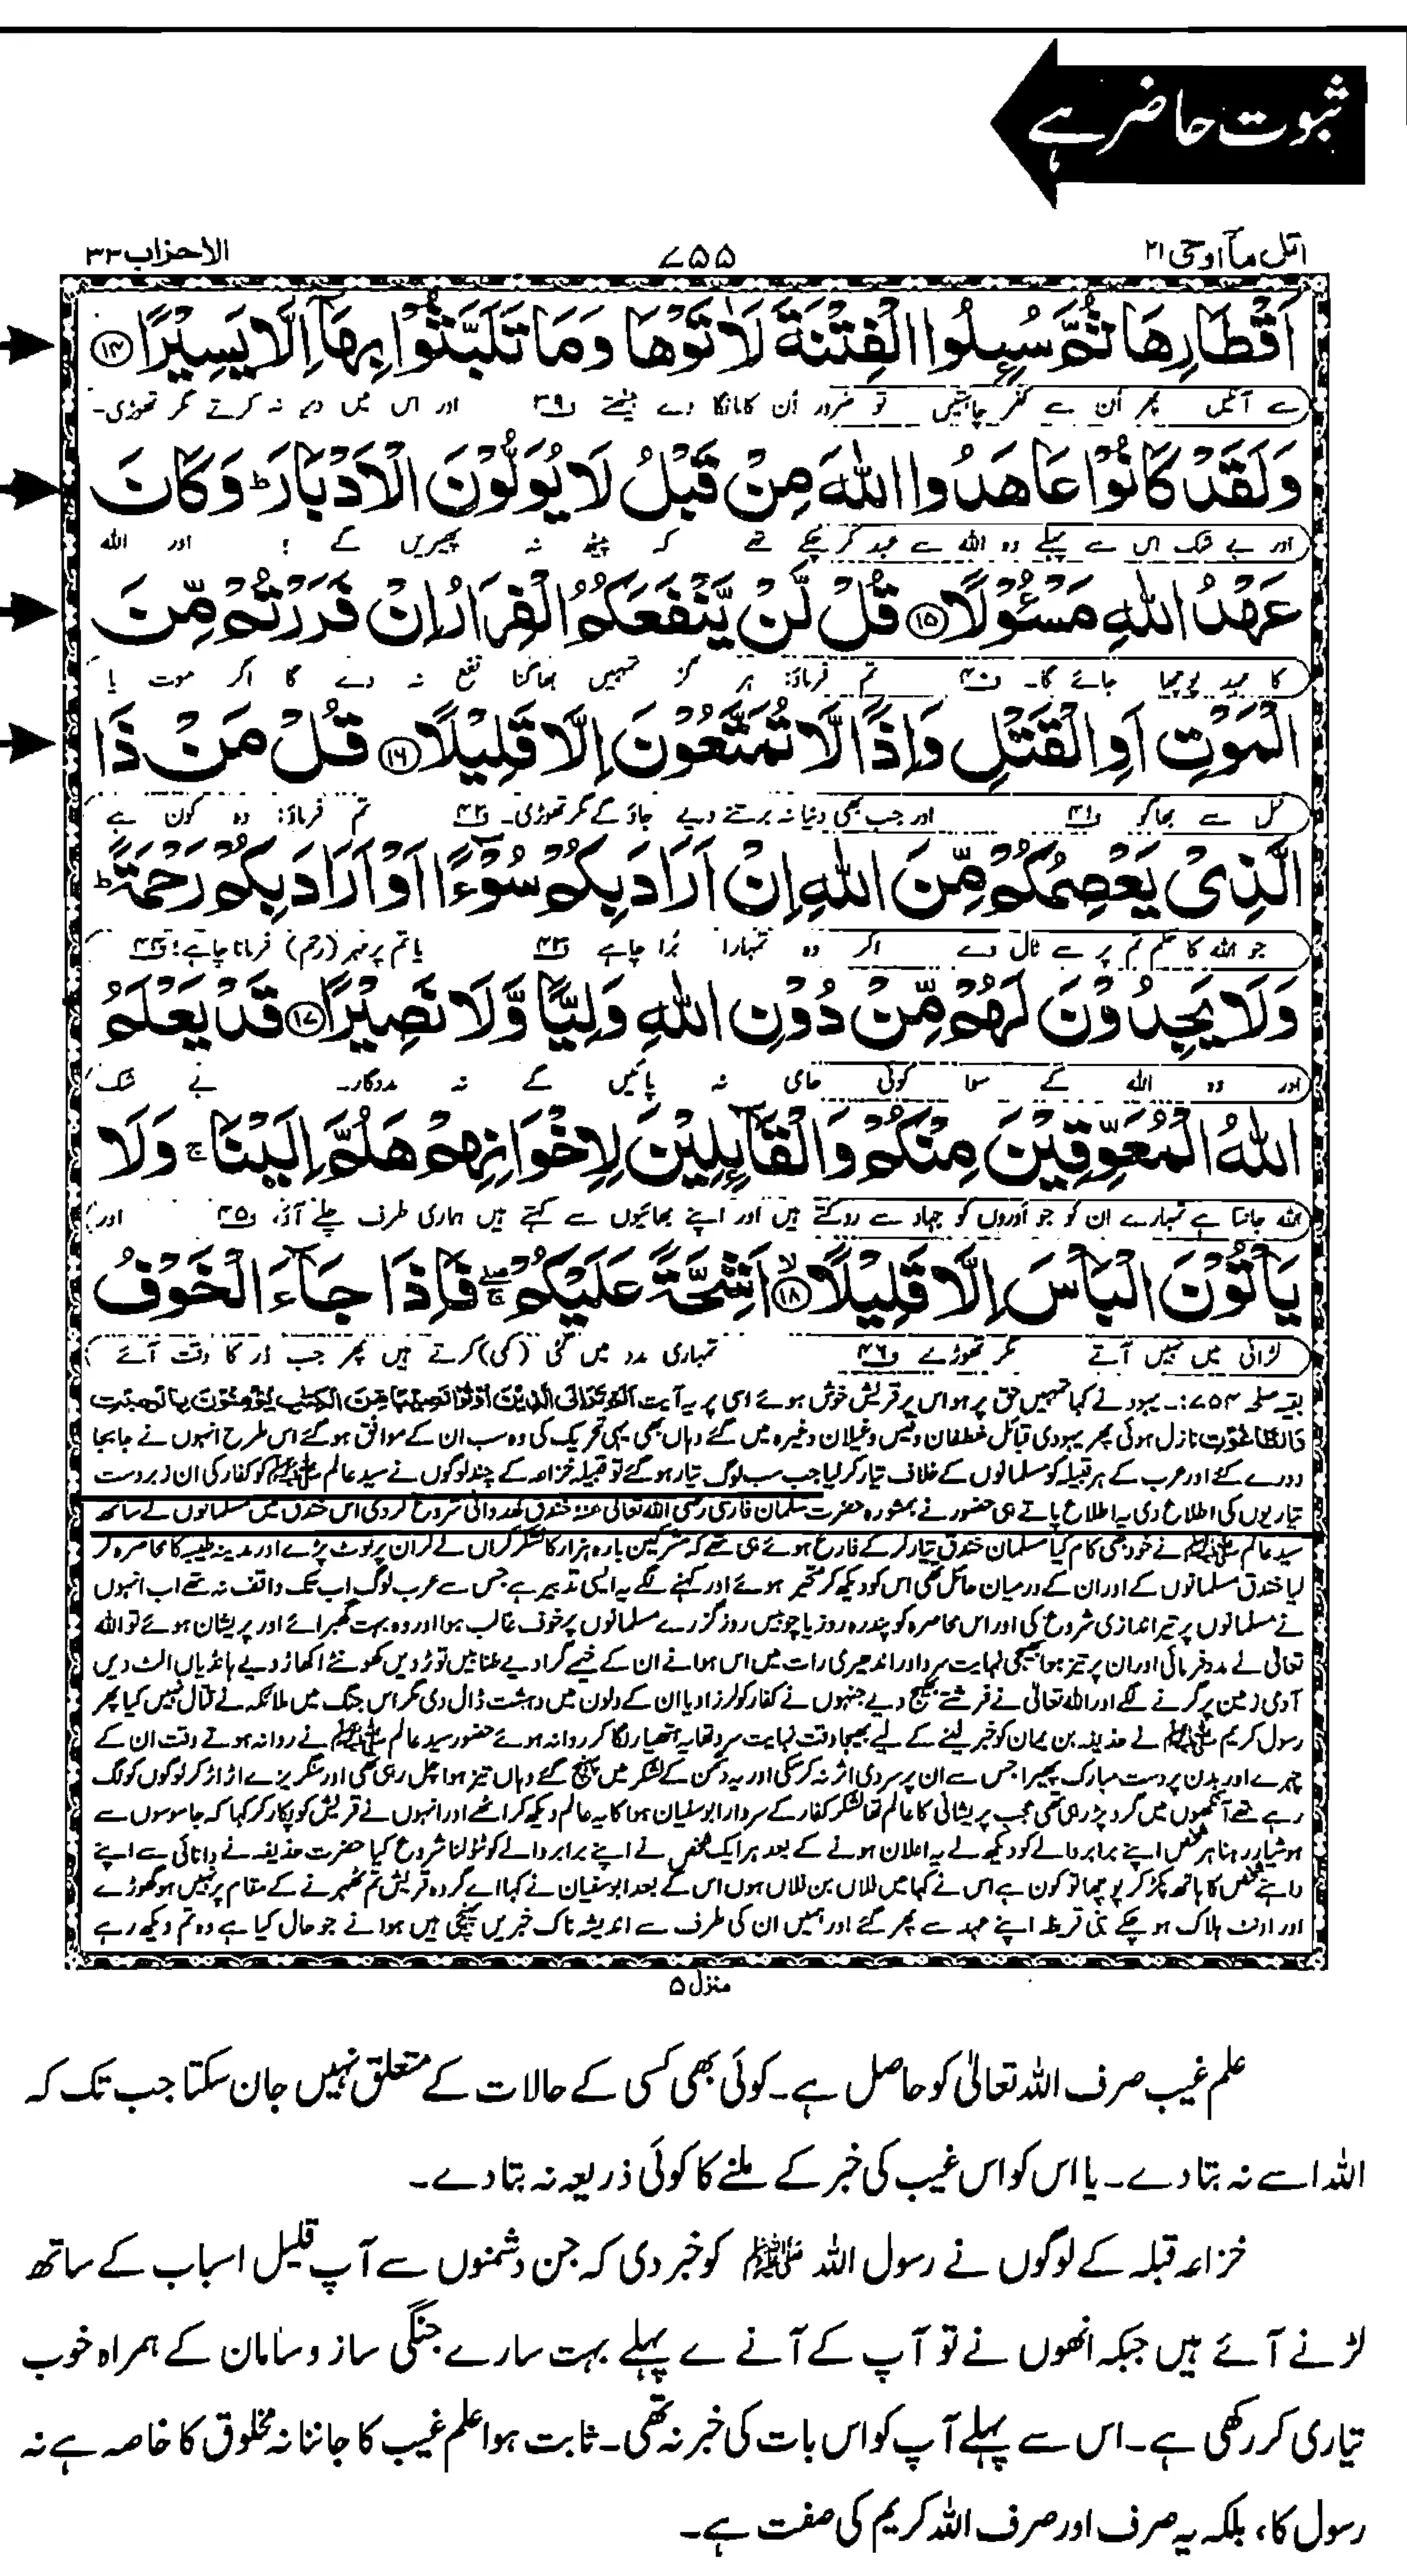 ثبوت حاضر ہے
اتل مآ اوحی ۲۱
۷۵۵
الاحزاب ۳۳
اَقْطَارِهَا ثُمَّ سُىِٕلُوا الْفِتْنَةَ لَاٰتَوْهَا وَمَا تَلَبَّثُوْا بِهَاۤ اِلَّا یَسِیْرًا ⑭
سے آتیں پھر اُن سے کفر چاہتیں تو ضرور اُن کا مانگا دے بیٹھتے و۳۹ اور اس میں دیر نہ کرتے مگر تھوڑی۔
وَلَقَدْ كَانُوْا عَاهَدُوا اللّٰهَ مِنْ قَبْلُ لَا یُوَلُّوْنَ الْاَدْبَارَ ؕ وَكَانَ
اور بے شک اس سے پہلے وہ اللہ سے عہد کر چکے تھے کہ پیٹھ نہ پھیریں گے ؛ اور اللہ
عَهْدُ اللّٰهِ مَسْـُٔوْلًا ⑮ قُلْ لَّنْ یَّنْفَعَكُمُ الْفِرَارُ اِنْ فَرَرْتُمْ مِّنَ
کا عہد پوچھا جائے گا۔ و۴۰ تم فرماؤ: ہر گز تمہیں بھاگنا نفع نہ دے گا اگر موت یا
الْمَوْتِ اَوِ الْقَتْلِ وَاِذًا لَّا تُمَتَّعُوْنَ اِلَّا قَلِیْلًا ⑯ قُلْ مَنْ ذَا
قتل سے بھاگو و۴۱ اور جب بھی دنیا نہ برتنے دیے جاؤ گے مگر تھوڑی۔ و۴۲ تم فرماؤ: وہ کون ہے
الَّذِیْ یَعْصِمُكُمْ مِّنَ اللّٰهِ اِنْ اَرَادَ بِكُمْ سُوْٓءًا اَوْ اَرَادَ بِكُمْ رَحْمَةً ؕ
جو اللہ کا حکم تم پر سے ٹال دے اگر وہ تمہارا بُرا چاہے و۴۳ یا تم پر مہر (رحم) فرمانا چاہے؛ و۴۴
وَلَا یَجِدُوْنَ لَهُمْ مِّنْ دُوْنِ اللّٰهِ وَلِیًّا وَّلَا نَصِیْرًا ⑰ قَدْ یَعْلَمُ
اور وہ اللہ کے سوا کوئی حامی نہ پائیں گے نہ مددگار۔ بے شک
اللّٰهُ الْمُعَوِّقِیْنَ مِنْكُمْ وَالْقَآىِٕلِیْنَ لِاِخْوَانِهِمْ هَلُمَّ اِلَیْنَا ۚ وَلَا
اللہ جانتا ہے تمہارے ان کو جو اَوروں کو جہاد سے روکتے ہیں اور اپنے بھائیوں سے کہتے ہیں ہماری طرف چلے آؤ، و۴۵ اور
یَاْتُوْنَ الْبَاْسَ اِلَّا قَلِیْلًا ⑱ اَشِحَّةً عَلَیْكُمْ ۚ فَاِذَا جَآءَ الْخَوْفُ
لڑائی میں نہیں آتے مگر تھوڑے و۴۶ تمہاری مدد میں گئی (کمی) کرتے ہیں پھر جب ڈر کا وقت آئے
بقیہ صفحہ ۷۵۴:۔ یہود نے کہا تمہیں حق پر ہو اس پر قریش خوش ہوئے اسی پر یہ آیت اَلَمْ تَرَ اِلَی الَّذِیْنَ اُوْتُوْا نَصِیْبًا مِّنَ الْكِتٰبِ یُؤْمِنُوْنَ بِالْجِبْتِ
وَالطَّاغُوْتِ نازل ہوئی پھر یہودی قبائل غطفان و قیس و غیلان وغیرہ میں گئے وہاں بھی یہی تحریک کی وہ سب ان کے موافق ہو گئے اس طرح انہوں نے جا بجا
دورے کئے اور عرب کے ہر قبیلہ کو مسلمانوں کے خلاف تیار کر لیا جب سب لوگ تیار ہو گئے تو قبیلہ خزاعہ کے چند لوگوں نے سید عالم ﷺ کو کفار کی ان زبردست
تیاریوں کی اطلاع دی یہ اطلاع پاتے ہی حضور نے بمشورہ حضرت سلمان فارسی رضی اللہ تعالیٰ عنہ خندق کھدوانی شروع کر دی اس خندق میں مسلمانوں کے ساتھ
سید عالم ﷺ نے خود بھی کام کیا مسلمان خندق تیار کر کے فارغ ہوئے ہی تھے کہ مشرکین بارہ ہزار کا لشکر گراں لے کر ان پر ٹوٹ پڑے اور مدینہ طیبہ کا محاصرہ کر
لیا خندق مسلمانوں کے اور ان کے درمیان حائل تھی اس کو دیکھ کر متحیر ہوئے اور کہنے لگے یہ ایسی تدبیر ہے جس سے عرب لوگ اب تک واقف نہ تھے اب انہوں
نے مسلمانوں پر تیر اندازی شروع کی اور اس محاصرہ کو پندرہ روز یا چوبیس روز گزرے مسلمانوں پر خوف غالب ہوا اور وہ بہت گھبرائے اور پریشان ہوئے تو اللہ
تعالیٰ نے مدد فرمائی اور ان پر تیز ہوا بھیجی نہایت سرد اور اندھیری رات میں اس ہوا نے ان کے خیمے گرا دیے طنابیں توڑ دیں کھونٹے اکھاڑ دیے ہانڈیاں الٹ دیں
آدمی زمین پر گرنے لگے اور اللہ تعالیٰ نے فرشتے بھیج دیے جنہوں نے کفار کو لرزا دیا ان کے دلوں میں دہشت ڈال دی مگر اس جنگ میں ملائکہ نے قتال نہیں کیا پھر
رسول کریم ﷺ نے حذیفہ بن یمان کو خبر لینے کے لیے بھیجا وقت نہایت سرد تھا یہ ہتھیار لگا کر روانہ ہوئے حضور سید عالم ﷺ نے روانہ ہوتے وقت ان کے
چہرے اور بدن پر دست مبارک پھیرا جس سے ان پر سردی اثر نہ کر سکی اور یہ دشمن کے لشکر میں پہنچ گئے وہاں تیز ہوا چل رہی تھی اور سنگریزے اڑ اڑ کر لوگوں کو لگ
رہے تھے آنکھوں میں گرد پڑ رہی تھی عجب پریشانی کا عالم تھا لشکر کفار کے سردار ابو سفیان ہوا کا یہ عالم دیکھ کر اٹھے اور انہوں نے قریش کو پکار کر کہا کہ جاسوسوں سے
ہوشیار رہنا ہر شخص اپنے برابر والے کو دیکھ لے یہ اعلان ہونے کے بعد ہر ایک شخص نے اپنے برابر والے کو ٹٹولنا شروع کیا حضرت حذیفہ نے دانائی سے اپنے
داہنے شخص کا ہاتھ پکڑ کر پوچھا تو کون ہے اس نے کہا میں فلاں بن فلاں ہوں اس کے بعد ابوسفیان نے کہا اے گروہ قریش تم ٹھہرنے کے مقام پر نہیں ہو گھوڑے
اور اونٹ ہلاک ہو چکے بنی قریظہ اپنے عہد سے پھر گئے اور ہمیں ان کی طرف سے اندیشہ ناک خبریں پہنچی ہیں ہوا نے جو حال کیا ہے وہ تم دیکھ رہے
منزل ۵
علم غیب صرف اللہ تعالیٰ کو حاصل ہے۔ کوئی بھی کسی کے حالات کے متعلق نہیں جان سکتا جب تک کہ
اللہ اسے نہ بتا دے۔ یا اس کو اس غیب کی خبر کے ملنے کا کوئی ذریعہ نہ بتا دے۔
خزاعہ قبلہ کے لوگوں نے رسول اللہ ﷺ کو خبر دی کہ جن دشمنوں سے آپ قلیل اسباب کے ساتھ
لڑنے آئے ہیں جبکہ انھوں نے تو آپ کے آنے ے پہلے بہت سارے جنگی ساز و سامان کے ہمراہ خوب
تیاری کر رکھی ہے۔ اس سے پہلے آپ کو اس بات کی خبر نہ تھی۔ ثابت ہوا علم غیب کا جاننا نہ مخلوق کا خاصہ ہے نہ
رسول کا، بلکہ یہ صرف اور صرف اللہ کریم کی صفت ہے۔